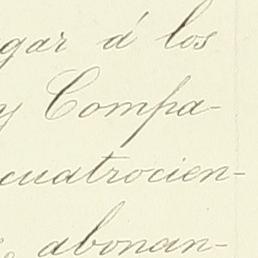 gar á los
y Compa-
cuatrocien-
abonan-